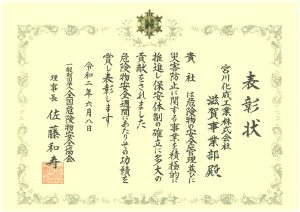 表彰状
宮川化成工業株式会社
滋賀事業部殿
貴社は危険物の安全管理並びに
災害防止に関する事業を積極的に
推進し保安体制の確立に多大の
貢献をされました
危険物安全週間にあたりその功績を
賞し表彰します
令和二年六月八日
一般財団法人全国危険物安全協会
理事長 佐藤和寿